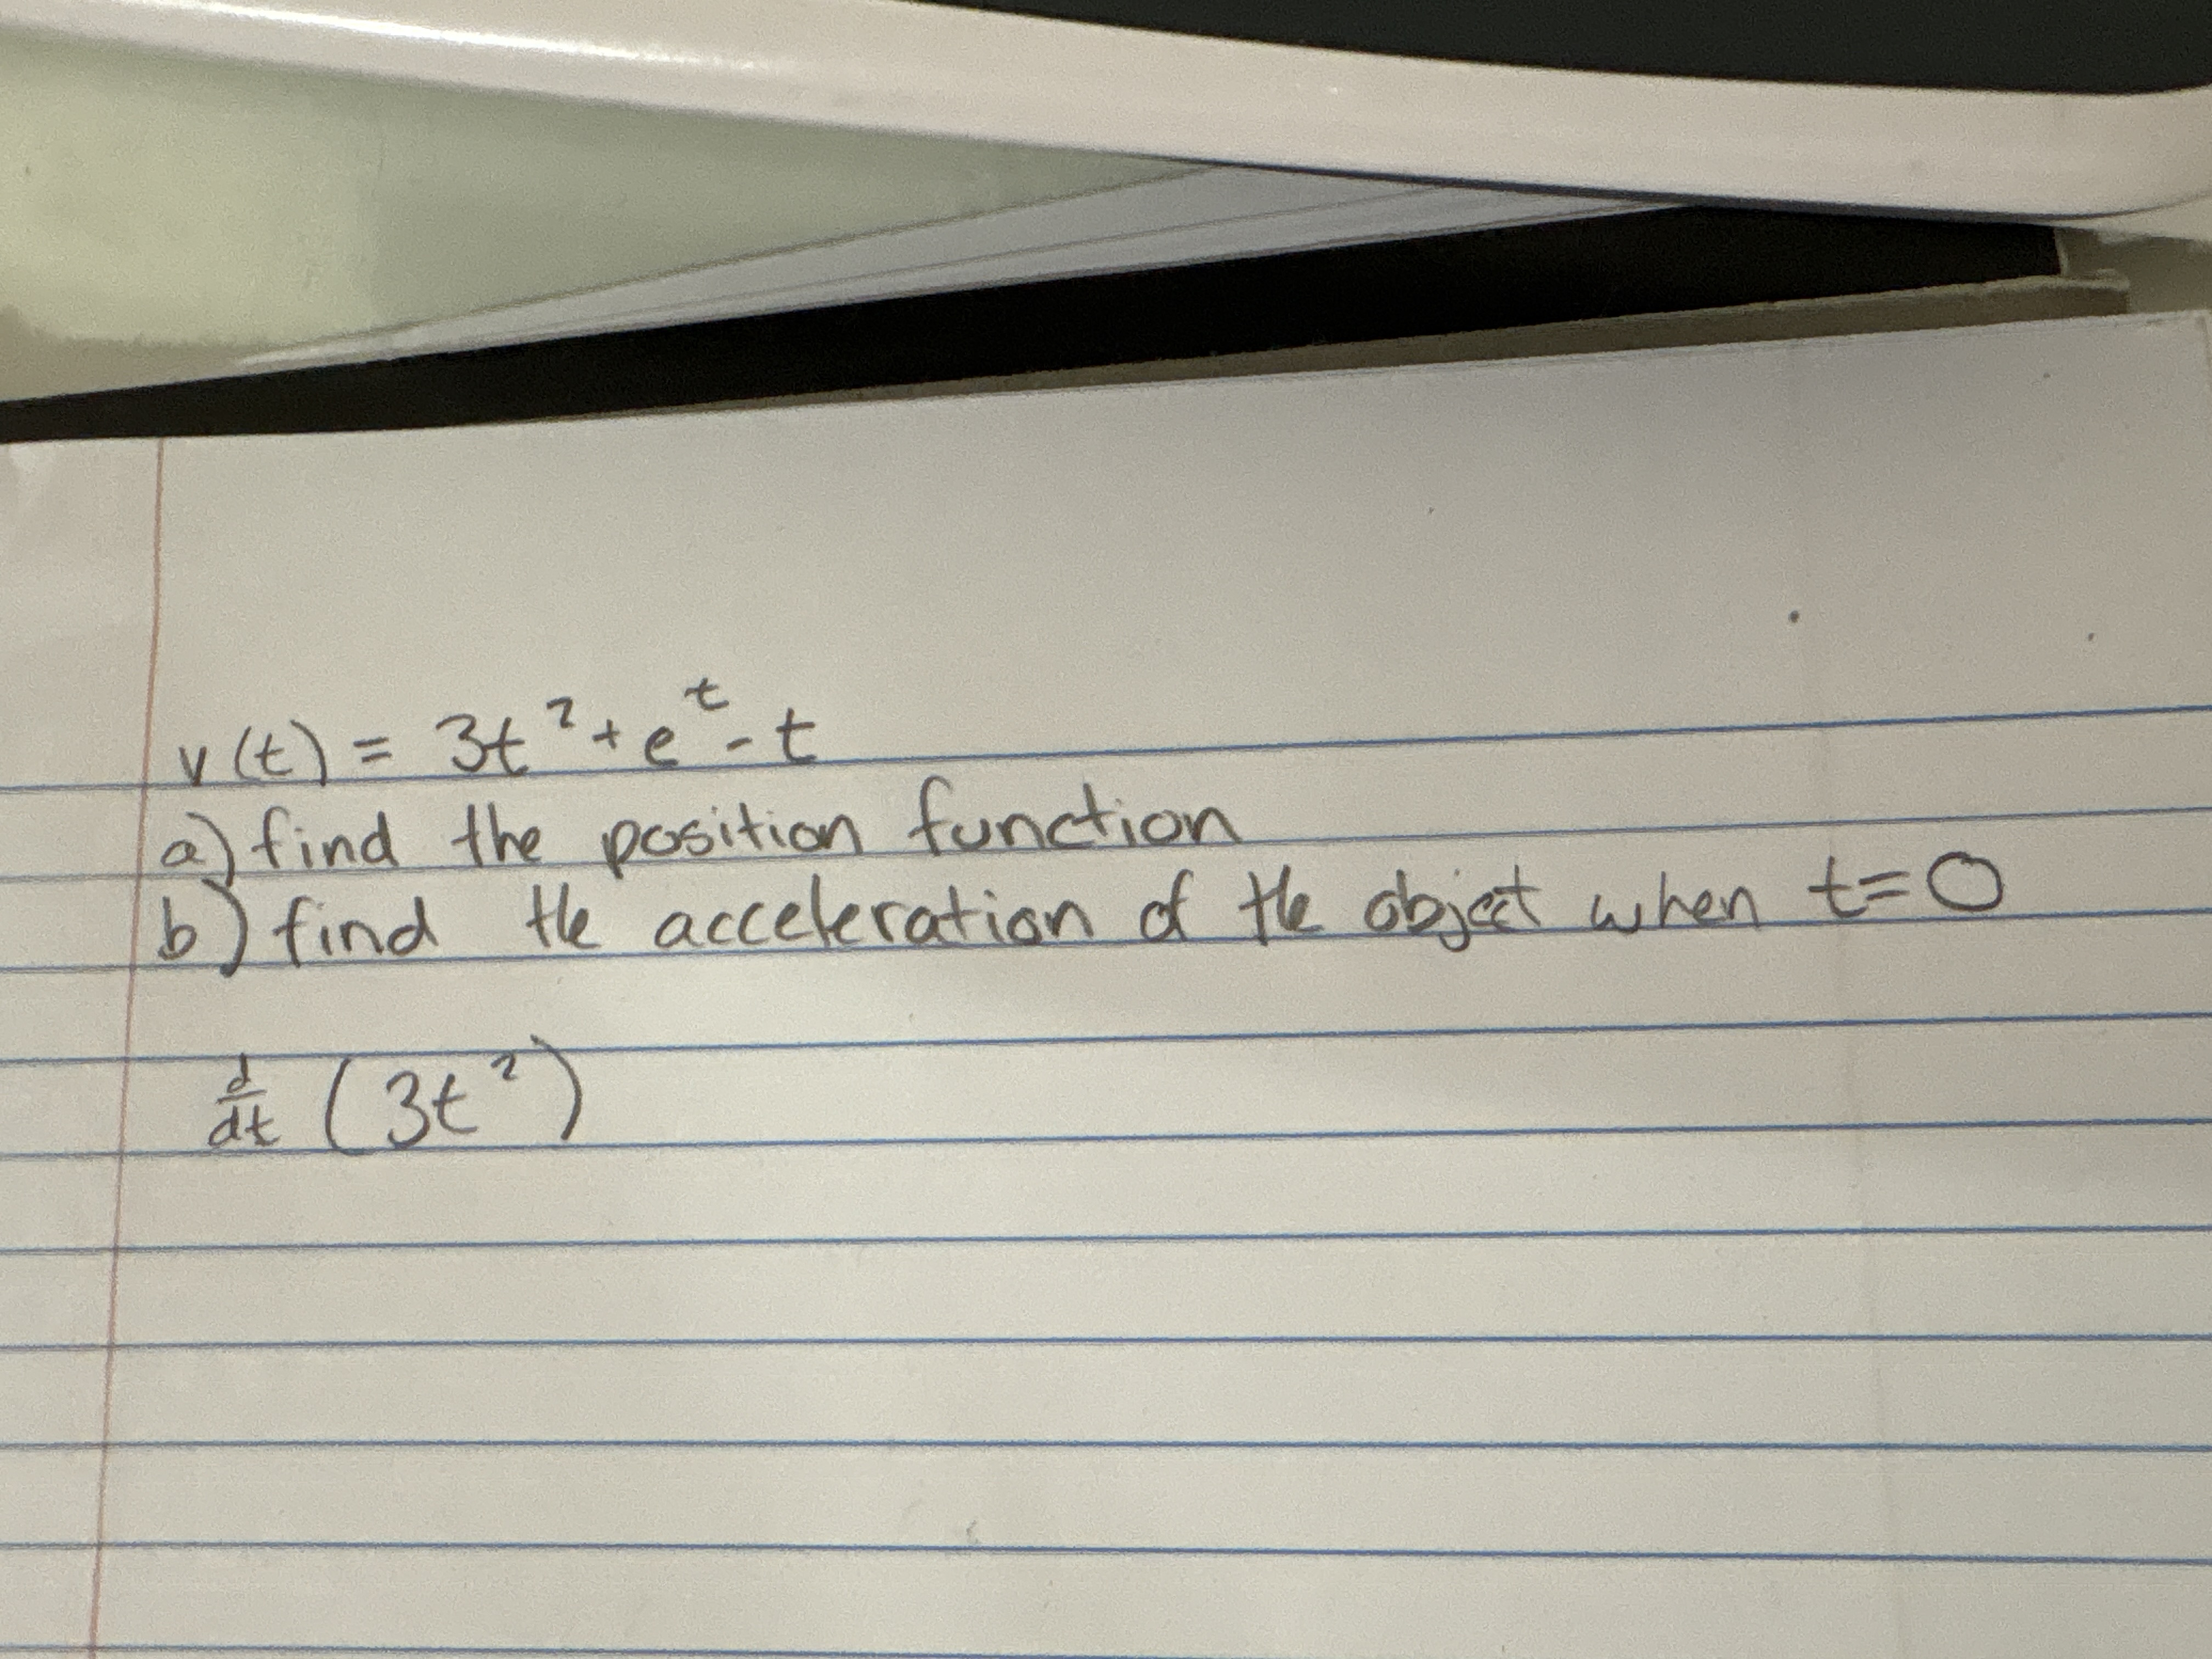 v(t) = 3t² + e^t - t
a) find the position function
b) find the acceleration of the object when t=0
d/dt (3t²)